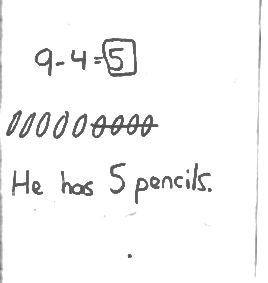 9-4=5
He has 5 pencils.